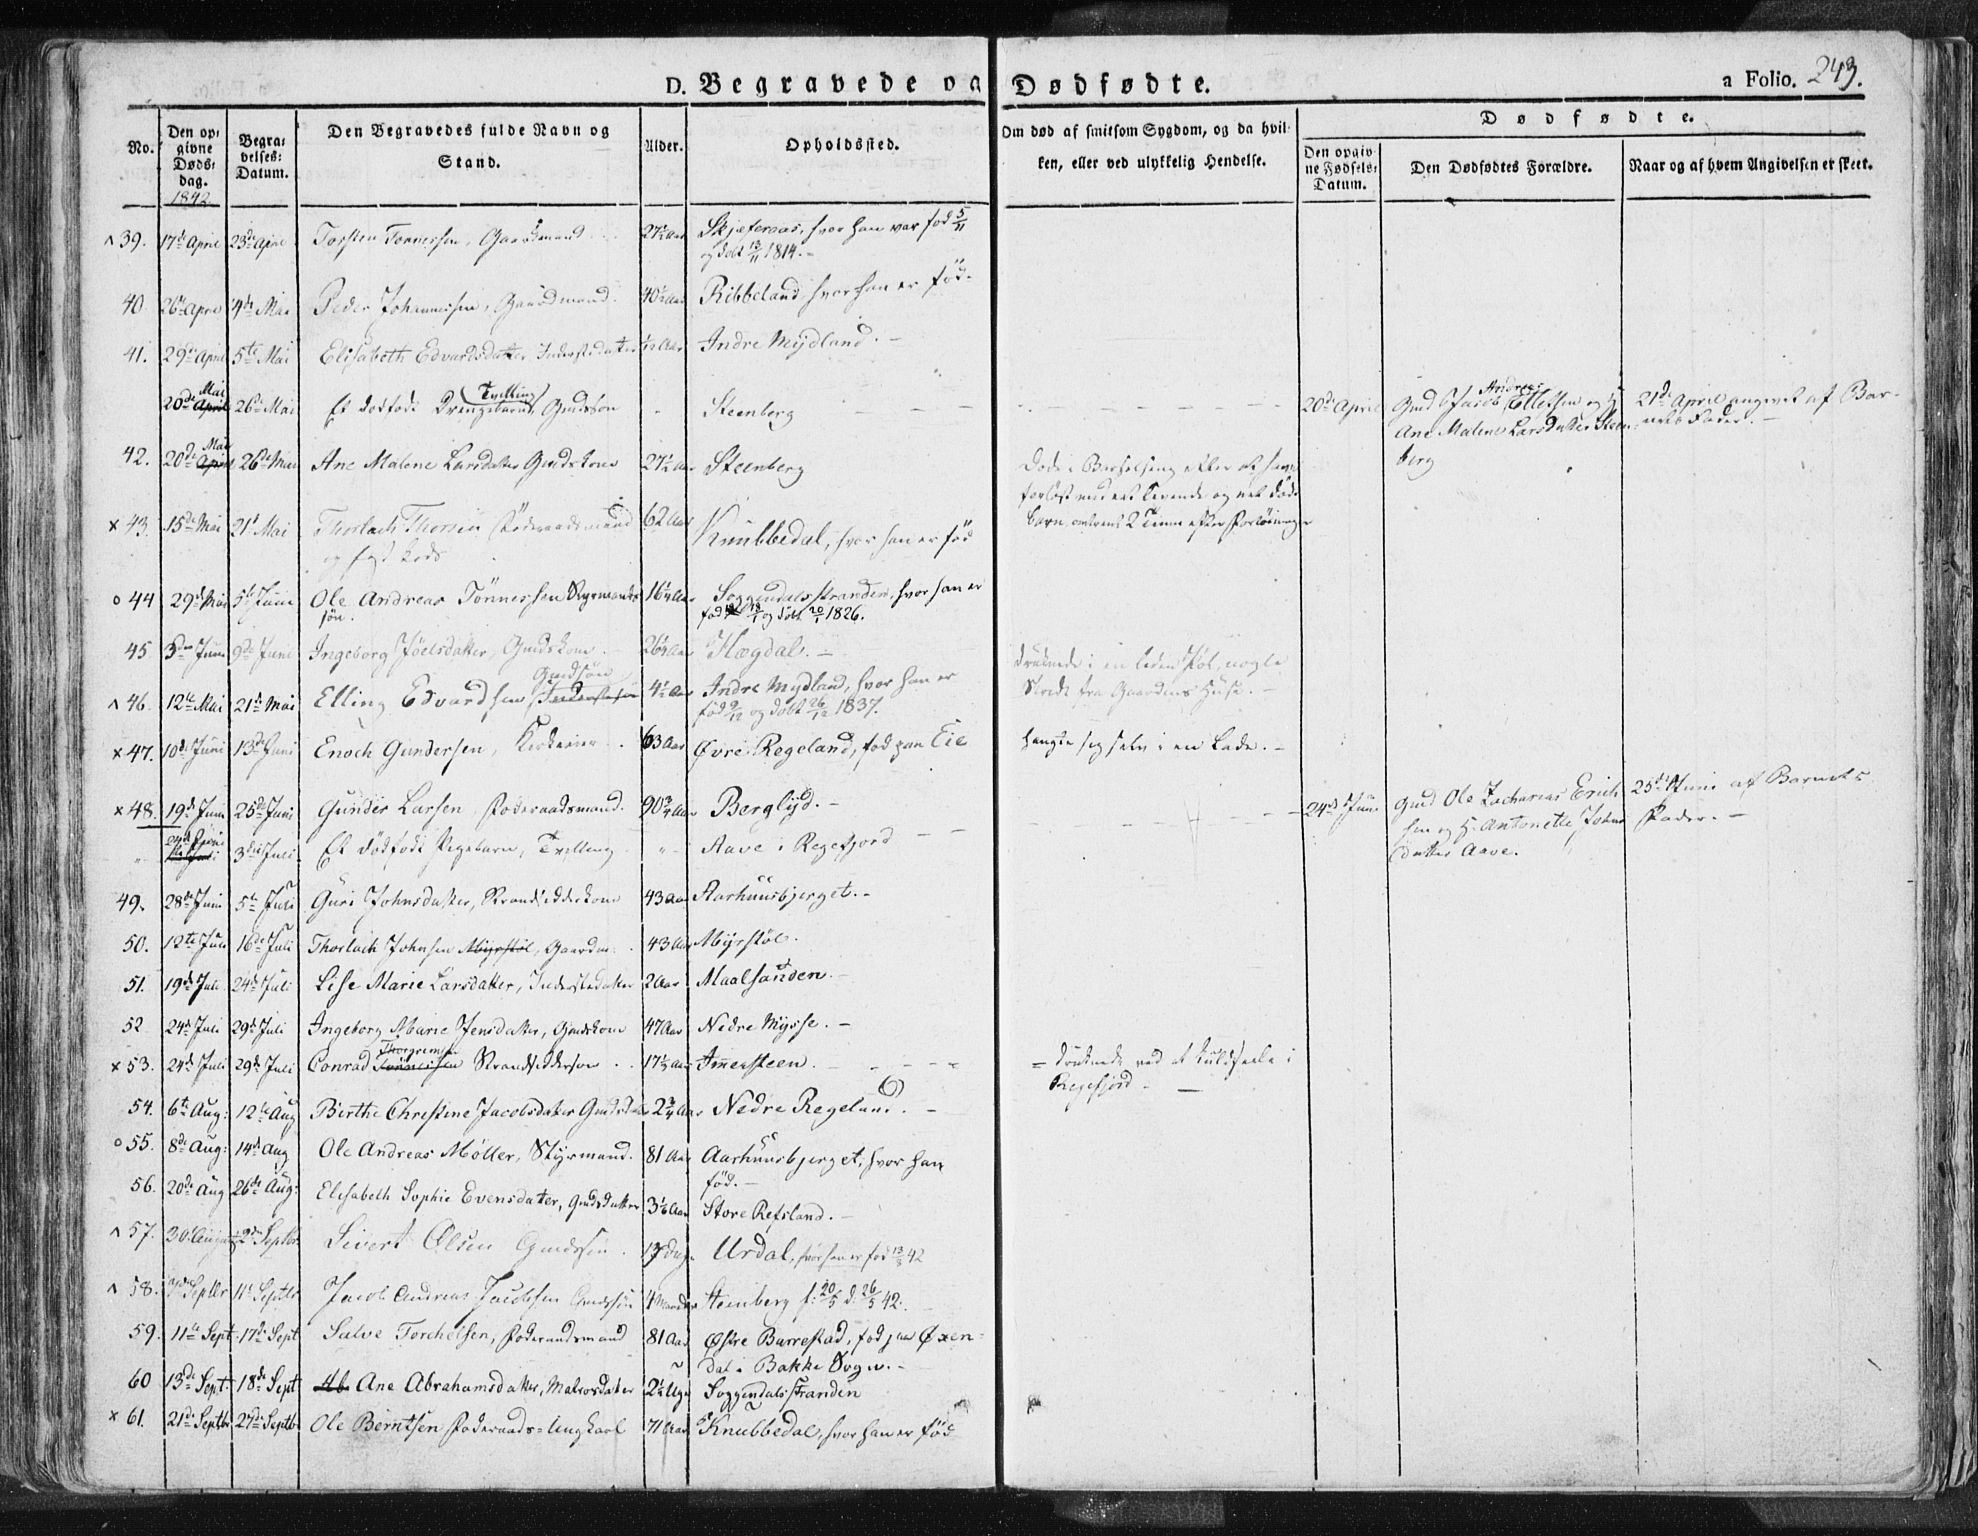 D. Begravede og Dødfødte.
a Folio. 243.
No.
Den opgivne Dødsdag.
1842
Begravelses: Datum.
Den Begravedes fulde Navn og Stand.
Alder.
Opholdssted.
Om død af smitsom Sygdom, og da hvilken, eller ved ulykkelig Hendelse.
Dødfødte.
Den opgivne Fødsels: Datum.
Den Dødfødtes Forældre.
Naar og af hvem Angivelsen er skeet.
39. 17de April 23de April Torsten Tønnessen, Gaardmand 27½ Aar Skjefveraas, hvor han var fød 5/11
og døbt 13/11 1814.-
40 26de April 4de Mai Peder Johannessen, Gaardmand. 40½ Aar Ribbeland, hvor han er fød.
41. 29de April 5te Mai Elisabeth Edvardsdatter, Inderstedatter Aar Indre Mydland.-
Mai Tvilling
20de April 26de Mai Et dødfødt Drengebarn, Gmdssøn Steenberg 20de April Gmd Jacob Andreas Elletsen og H. 21de April angivet af Bar-
Ane Malene Larsdatter Steen- nets Fader.-
berg
42. 20de April Mai 26de Mai Ane Malene Larsdatter Gmdskone 27½ Aar Steenberg Døde i Barselseng efter at have
forløst med et levende og et død
Barn, omtrent 2 Timer efter Forløsningen
× 43. 15de Mai 21de Mai Thorlach Thorsen Føderaadsmand 62 Aar Knubbedal, hvor han er fød
og
o 44 29de Mai 5te Juni Ole Andreas Tönnessen Styrmands 16¼ Aar Soggendalsstranden, hvor han er
søn. fød og døbt 20/1 1826.
45 3die Juni 9de Juni Ingeborg Joelsdatter, Gmdskone.- 26¼ Aar Hægdal.- druknede i en liden Kól, nogle
Skridt fra Gaardens Huse.-
Gmdsøn
46. 12te Mai 21de Mai Elling Edvardsen Inderstesøn 4½ Aar Indre Mydland, hvor han er
fød 9/12 og døbt 26/12 1837.
× 47. 10de Juni 13de Juni Enoch Gundersen, 63 Aar Øvre Regeland, fød paa Eie hengte sig selv i en Lade.-
× 48. 19de Juni 25de Juni Gunder Larsen Føderaadsmand. 90¾ Aar Berglyd.-
24de Juni 3die Juli Et dødfødt Pigebarn, Tvilling Aave i Regefjord 24de Juni Gmd Ole Zacharias Erich 25de Juni af Barnets
sen og H. Antonette Johns Fader.-
datter Aave.
49. 28de Juni 5te Juli Guri Johnsdatter, Strandsidderkone 43 Aar Aarhuusbjerget.-
50. 12te Juli 16de Juli Thorlach Johnsen Myrstøl, Gaardm. 43 Aar Myrstøl.
51. 19de Juli 24de Juli Lise Marie Larsdatter, Inderstedatter 2 Aar Maalsanden.-
52 24de Juli 29de Juli Ingeborg Marie Jensdatter, Gmdskone 47 Aar Nedre Mysse.-
Thorgrimsen
× 53. 24de Juli 29de Juli Conrad Tönnessen Strandsiddersøn 17½ Aar Immersteen. druknede ved at kuldseile i
Regefjord.-
54. 6te Aug: 12te Aug Birthe Christine Jacobsdatter Gmdsdatter 2¾ Aar Nedre Regeland.-
o 55. 8de Aug: 14de Aug Ole Andreas Møller, Styrmand. 81 Aar Aarhuusbjerget, hvor han
fød.-
56. 20de Aug 26de Aug: Elisabeth Sophie Evensdatter, Gmdsdatter Aar Store Refsland.-
57. 30te August 2den Septbr Sivert Olsen Gmdssøn. 17 Dage Urdal, hvor han er fød 13/8 42
58. Septbr 11te Septbr Jacob Andreas Jacobsen Gmdssøn 4 Maaneder Steenberg f: 20/5 d: 26/5 42.
59. 11te Sept 17de Sept Salve Torchelsen, Føderaadsmand 81 Aar Østre Barrestad, fød paa Øxen-
dal i Bakke Sogn.-
60 13de Sept 18de Sept Ab. Ane Abrahamsdatter, Matrosdatter 2½ Uge Soggendalsstranden
× 61. 21de Septbr 27de Septbr Ole Berntsen Føderaads-Ungkarl 71 Aar Knubbedal, hvor han er fød